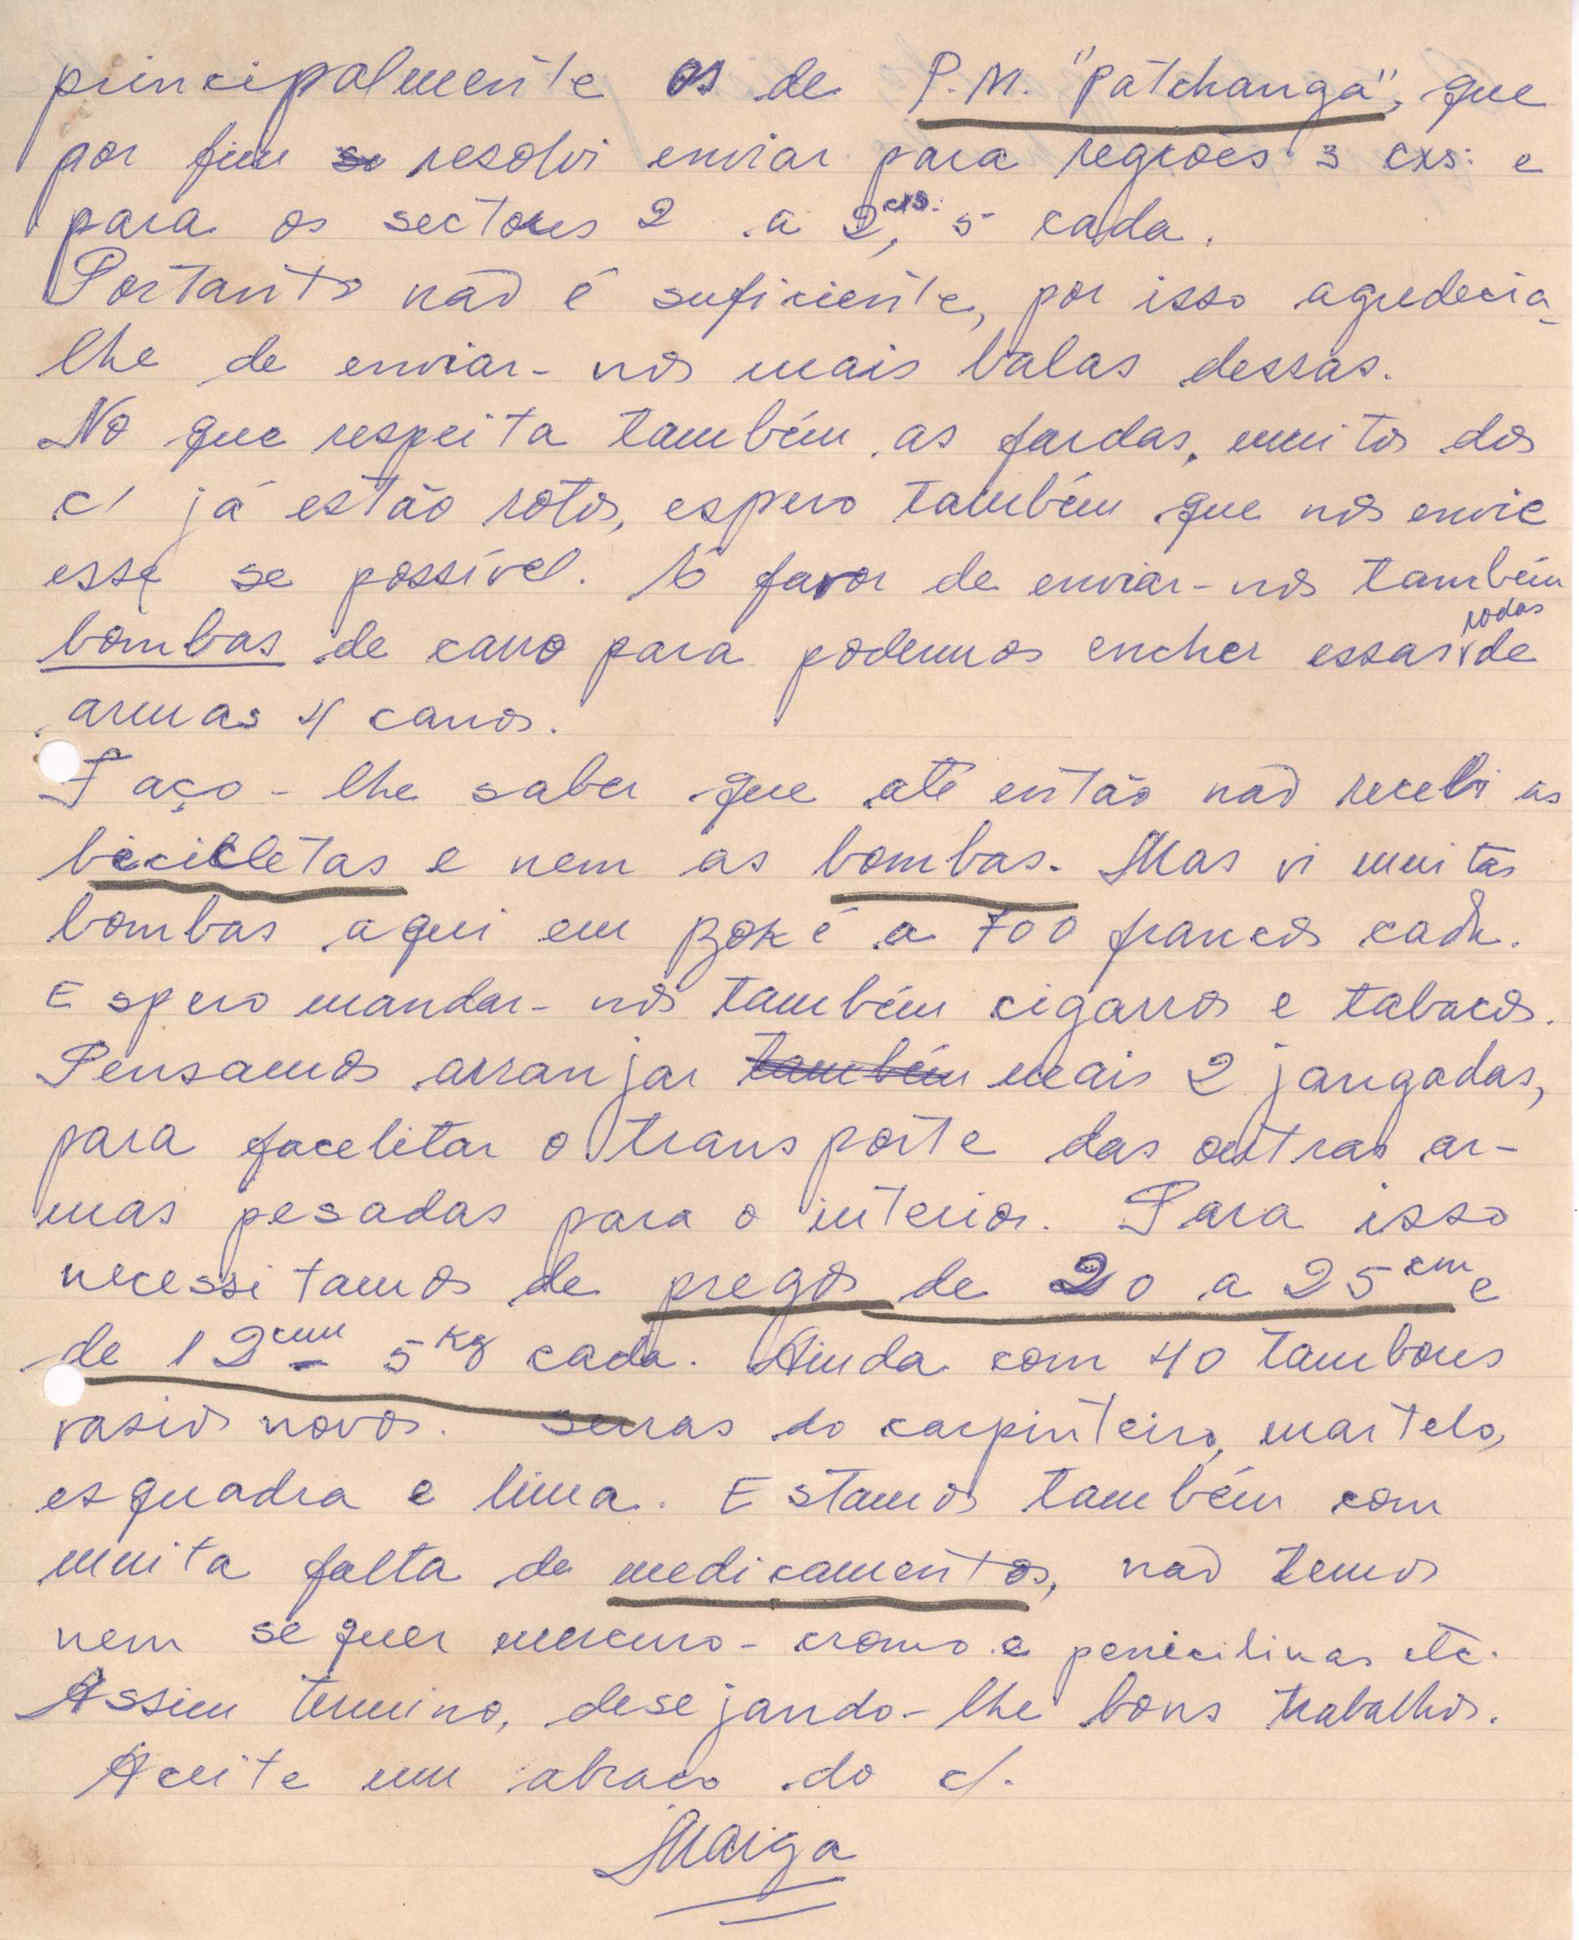 principalmente os de P.M. "Patchanga", que
por fim se resolvi enviar para regiões 3 cxs: e
para os sectores 2 a 2,5 cxs: cada.
Portanto não é suficiente, por isso agredecia-
lhe de enviar-nos mais balas dessas.
No que respeita também as fardas, muitos dos
c/ já estão rotos, espero também que nos envie
esse se possível. É favor de enviar-nos também
bombas de carro para podermos encher essas rodas de
armas 4 canos.
Faço-lhe saber que até então não recebi as
bicicletas e nem as bombas. Mas vi muitas
bombas aqui em Boké a 700 francos cada.
Espero mandar-nos também cigarros e tabacos.
Pensamos arranjar também mais 2 jangadas,
para facelitar o transporte das outras ar-
mas pesadas para o interior. Para isso
necessitamos de pregos de 20 a 25 cm e
de 12 cm 5 kg cada. Ainda com 40 tambores
vasios novos. Serras do carpinteiro, martelo,
esquadra e lima. Estamos também com
muita falta de medicamentos, não temos
nem sequer mercuro-cromo e penicilinas etc.
Assim termino, desejando-lhe bons trabalhos.
Aceite um abraço do c/.
Maiga